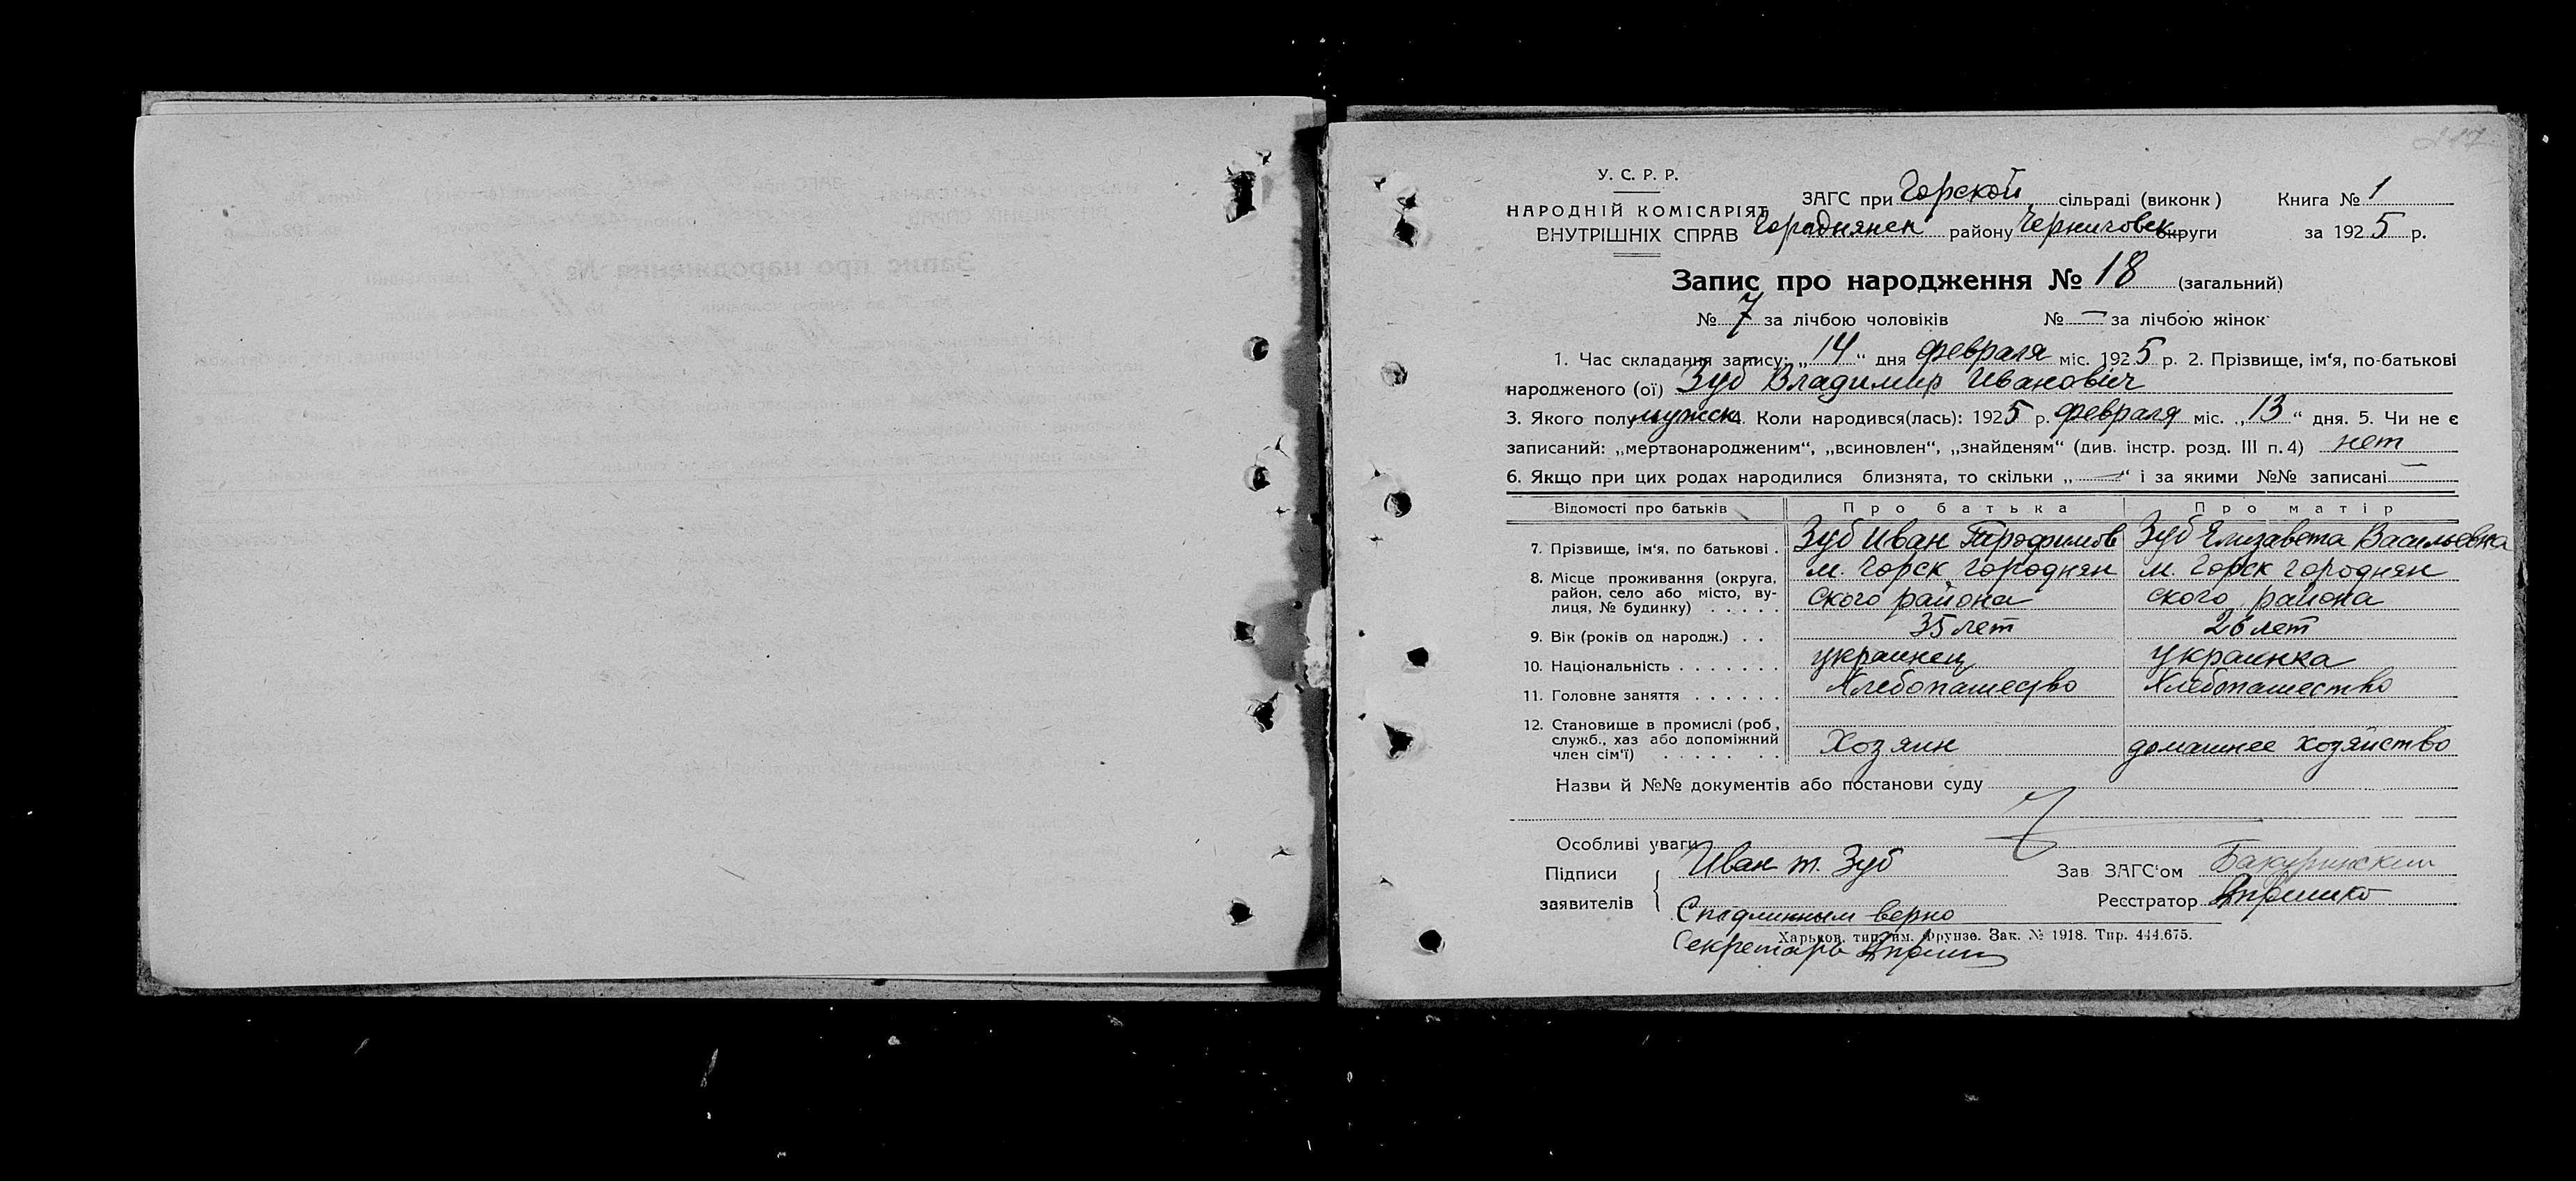 У. С. Р. Р.
НАРОДНІЙ КОМІСАРІЯТ
ВНУТРІШНІХ СПРАВ
ЗАГС при Горской сільраді (виконк) Книга № 1
Городнянск району Черниговск округи за 1925 р.
Запис про народження № 18 (загальний)
№ 7 за лічбою чоловіків № — за лічбою жінок
1. Час складання запису: „14“ дня февраля міс. 1925 р. 2. Прізвище, ім‘я, по-батькові
народженого (ої) Зуб Владимир Иванович
3. Якого полу мужск 4. Коли народився(лась): 1925 р. февраля міс. „13“ дня. 5. Чи не є
записаний: „мертвонародженим“, „всиновлен“, „знайденям“ (див. інстр. розд. III п. 4) нет
6. Якщо при цих родах народилися близнята, то скільки „—“ і за якими №№ записані —
Відомості про батьків Про батька Про матір
7. Прізвище, ім‘я, по батькові . Зуб Иван Трофимов Зуб Елизавета Васильевна
8. Місце проживання (округа, м. Горск Городнян м. Горск Городнян
район, село або місто, ву- ского района ского района
лиця, № будинку) . . . . .
9. Вік (років од народж.) . . 35 лет 26 лет
10. Національність . . . . . . . украинец украинка
11. Головне заняття . . . . . . Хлебопашество Хлебопашество
12. Становище в промислі (роб.,
служб., хаз або допоміжний Хозяин домашнее хозяйство
член сім‘ї) . . . . . . .
Назви й №№ документів або постанови суду
Особливі уваги
Підписи Иван т. Зуб Зав ЗАГС‘ом Бакуринский
заявителів Реєстратор
С подлинным верно
Харьков. тип. им. Фрунзе. Зак. № 1918. Тир. 444.675.
Секретарь